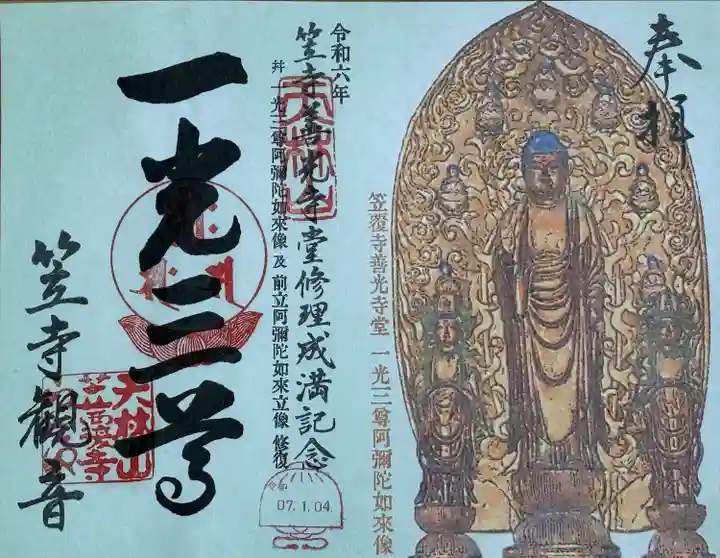 奉拝
笠覆寺善光寺堂 一光三尊阿彌陀如來像
令和六年
笠寺善光寺堂修理成満記念
幷 一光三尊阿彌陀如來像 及 前立阿彌陀如來立像 修復
一光三尊
笠寺觀音
天林山
天林山
笠覆寺
令和
07.1.04.